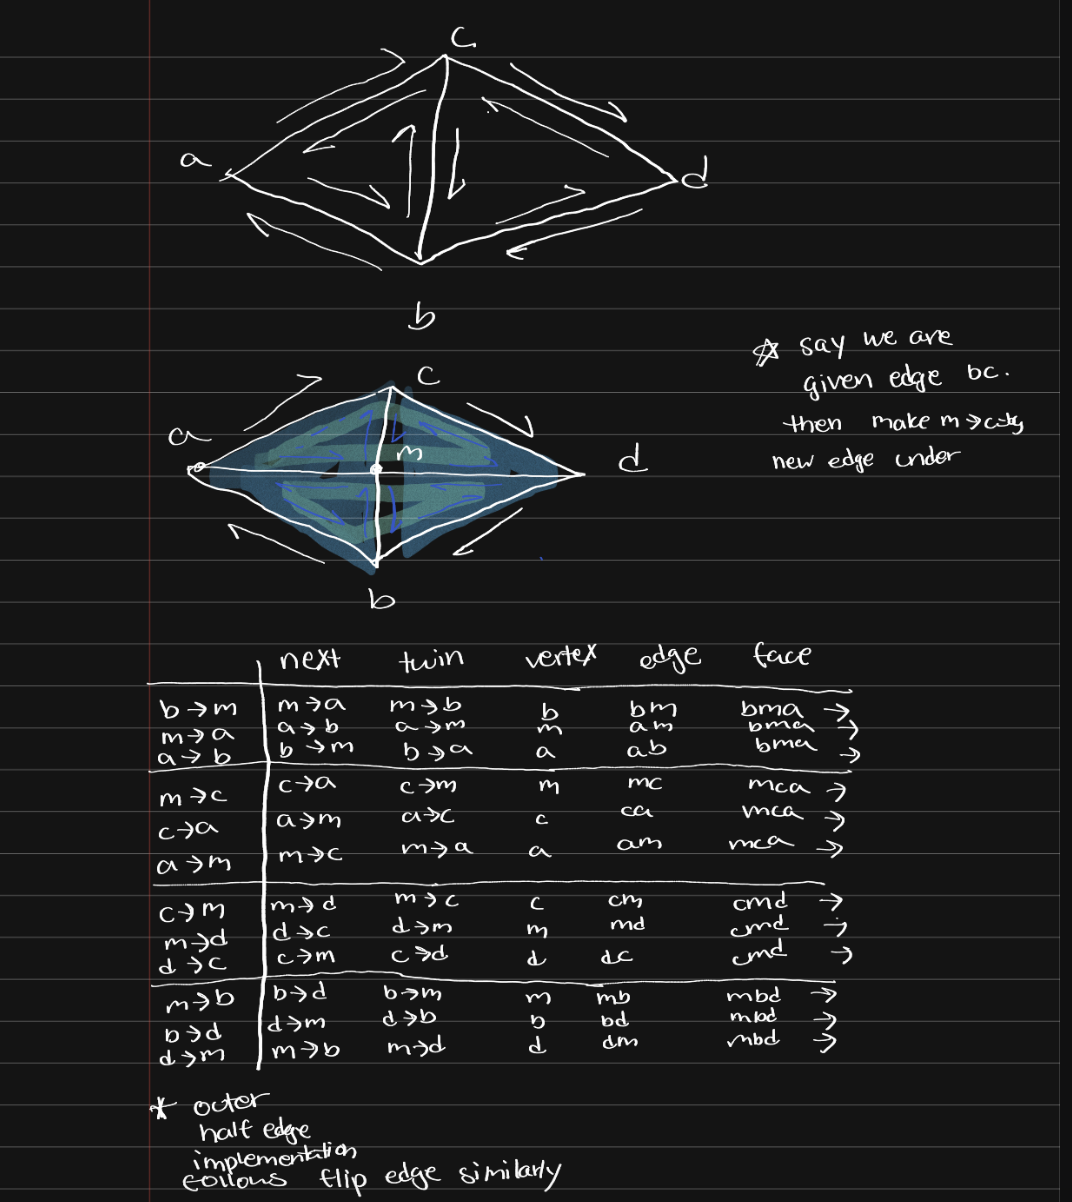 c
a
d
b
☆ say we are
given edge bc.
then make m→c
new edge under
c
a
m
d
b
next twin vertex edge face
b→m m→a m→b b bm bma →
m→a a→b a→m m am bma →
a→b b→m b→a a ab bma →
m→c c→a c→m m mc mca →
c→a a→m a→c c ca mca →
a→m m→c m→a a am mca →
c→m m→d m→c c cm cmd →
m→d d→c d→m m md cmd →
d→c c→m c→d d dc cmd →
m→b b→d b→m m mb mbd →
b→d d→m d→b b bd mbd →
d→m m→b m→d d dm mbd →
* outer
half edge
implementation
follows flip edge similarly